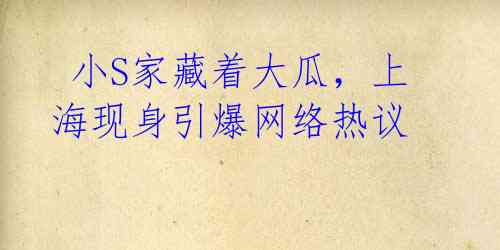 小S家藏着大瓜，上
海现身引爆网络热议